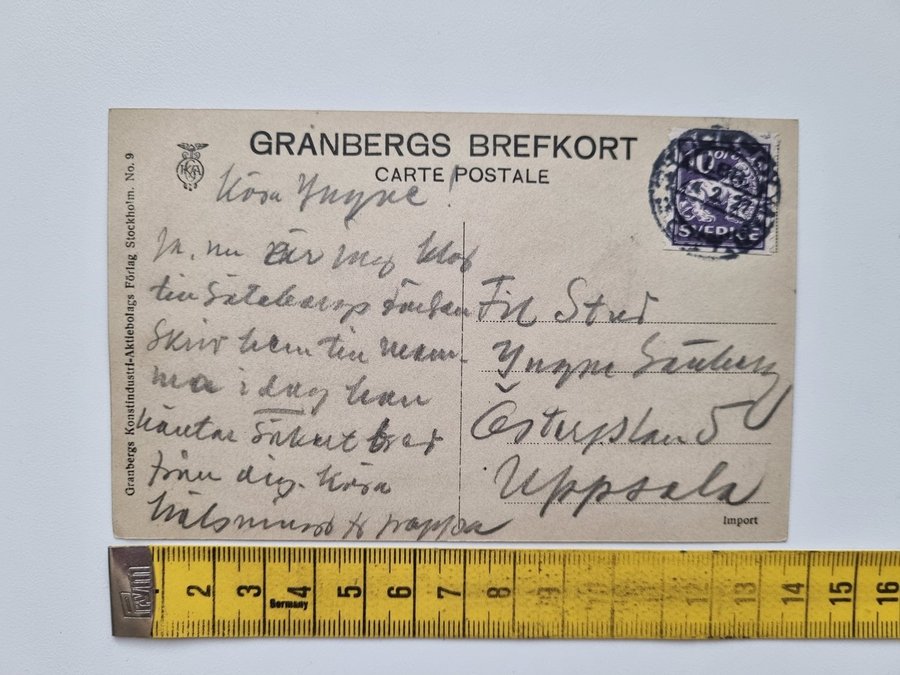 GRANBERGS BREFKORT
CARTE POSTALE
Granbergs Konstindustri-Aktiebolags Förlag Stockholm. No. 9
Kära Yngve!
Ja, nu är jag
till Göteborgs
skriv hem till mam-
ma i dag hon
väntar säkert
från dig. Kära
hälsningar fr pappa
Fil Stud
Yngve
Östergplan 5
Uppsala
SVERIGE
10
Import
2 3 4 5 6 7 8 9 10 11 12 13 14 15 16
Germany